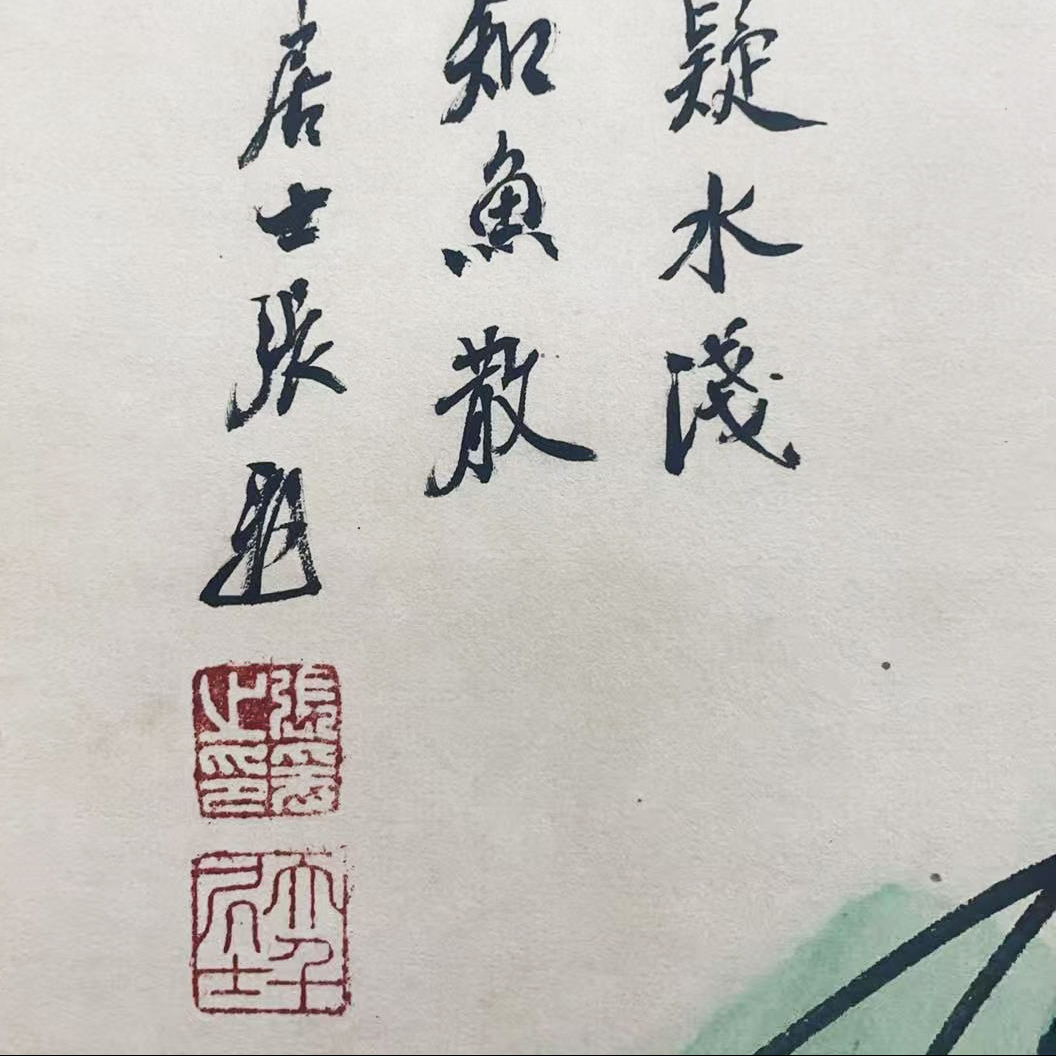 疑水淺
知魚散
居士張爰
張爰之印
大千居士